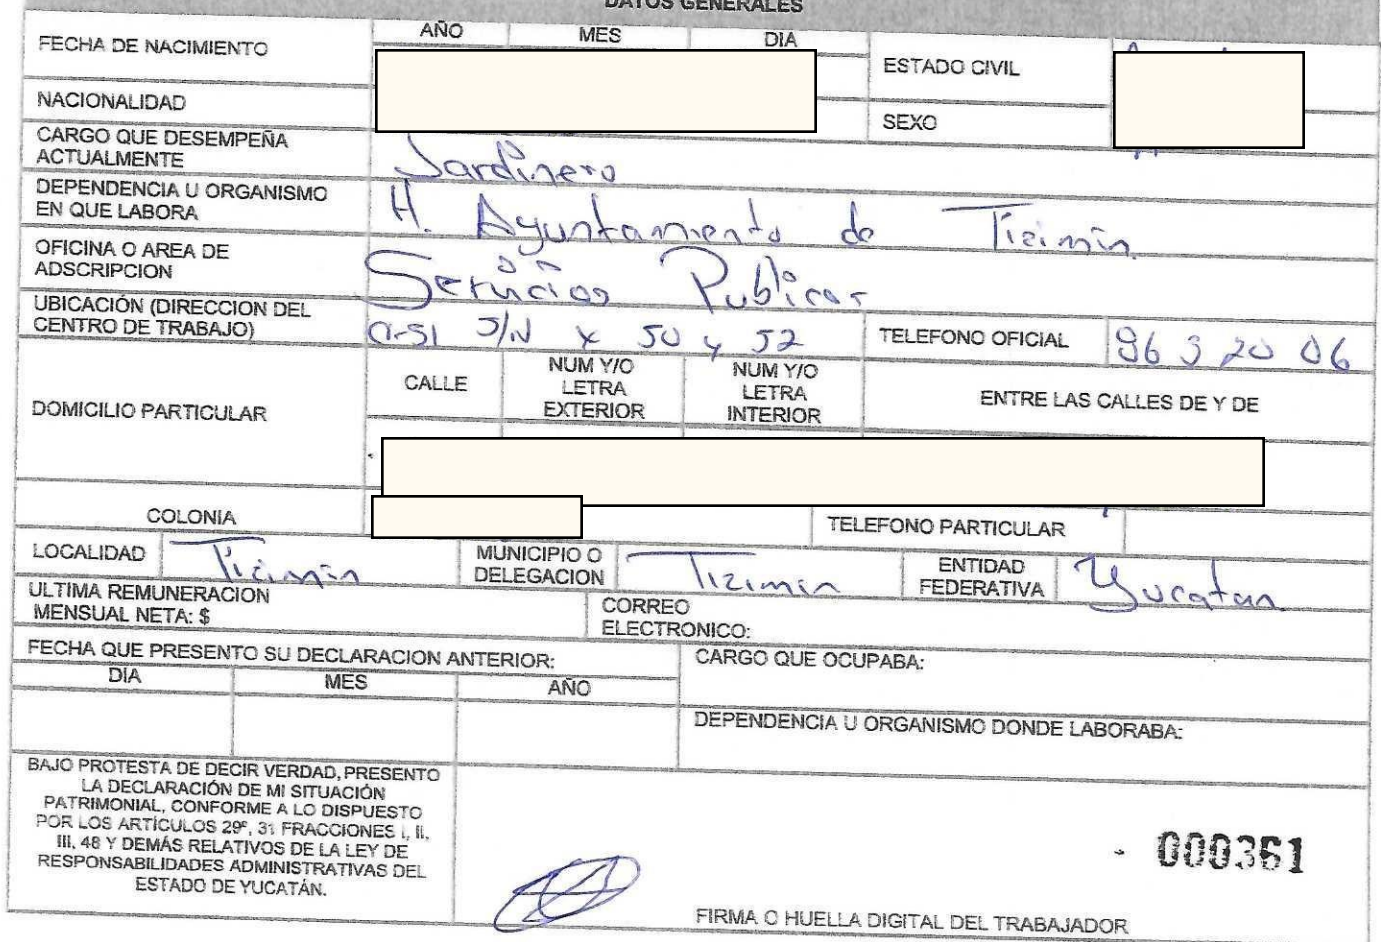 DATOS GENERALES
FECHA DE NACIMIENTO AÑO MES DIA
ESTADO CIVIL
NACIONALIDAD
SEXO
CARGO QUE DESEMPEÑA
ACTUALMENTE Jardinero
DEPENDENCIA U ORGANISMO
EN QUE LABORA H. Ayuntamiento de Tizimin
OFICINA O AREA DE
ADSCRIPCION Servicios Publicos
UBICACIÓN (DIRECCION DEL
CENTRO DE TRABAJO) C-51 S/N x 50 y 52 TELEFONO OFICIAL 86 3 20 06
DOMICILIO PARTICULAR
CALLE
NUM Y/O
LETRA
EXTERIOR
NUM Y/O
LETRA
INTERIOR
ENTRE LAS CALLES DE Y DE
COLONIA
TELEFONO PARTICULAR
LOCALIDAD Tizimin
MUNICIPIO O
DELEGACION Tizimin
ENTIDAD
FEDERATIVA Yucatan
ULTIMA REMUNERACION
MENSUAL NETA: $
CORREO
ELECTRONICO:
FECHA QUE PRESENTO SU DECLARACION ANTERIOR:
DIA MES AÑO
CARGO QUE OCUPABA:
DEPENDENCIA U ORGANISMO DONDE LABORABA:
BAJO PROTESTA DE DECIR VERDAD, PRESENTO
LA DECLARACIÓN DE MI SITUACIÓN
PATRIMONIAL, CONFORME A LO DISPUESTO
POR LOS ARTÍCULOS 29º, 31 FRACCIONES I, II,
III, 48 Y DEMÁS RELATIVOS DE LA LEY DE
RESPONSABILIDADES ADMINISTRATIVAS DEL
ESTADO DE YUCATÁN.
000361
FIRMA O HUELLA DIGITAL DEL TRABAJADOR